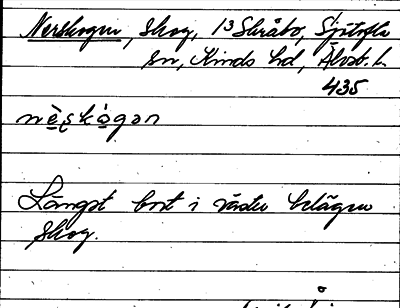 Nerskogen, skog, 13 Skråbo, Sjötofta
sn, Kinds hd, Älvsb. l.
435
nè̱ʂkò̱gən
Längst bort i väster belägen
skog.